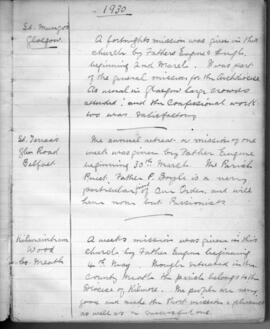 1930
St. Mungo's
Glasgow.
A fortnight's mission was given in this
church by Fathers Eugene & Hugh,
beginning 2nd March. It was part
of the general mission for the Archdiocese
As usual in Glasgow large crowds
attended: and the Confessional work
too was satisfactory
St. Teresa's
Glen Road
Belfast.
The annual retreat or mission of one
week was given by Father Eugene
beginning 30th March. The Parish
Priest, Father P. Boyle is a very
particular of Our Order, and will
have none but Passionists
Kilmainham
Wood
Co. Meath
A weeks mission was given in this
church by Father Eugene beginning
4th May. Though situated in the
County Meath the parish belongs to the
Diocese of Kilmore. The people are very
good and made the first mission a pleasant
as well as a successful one.